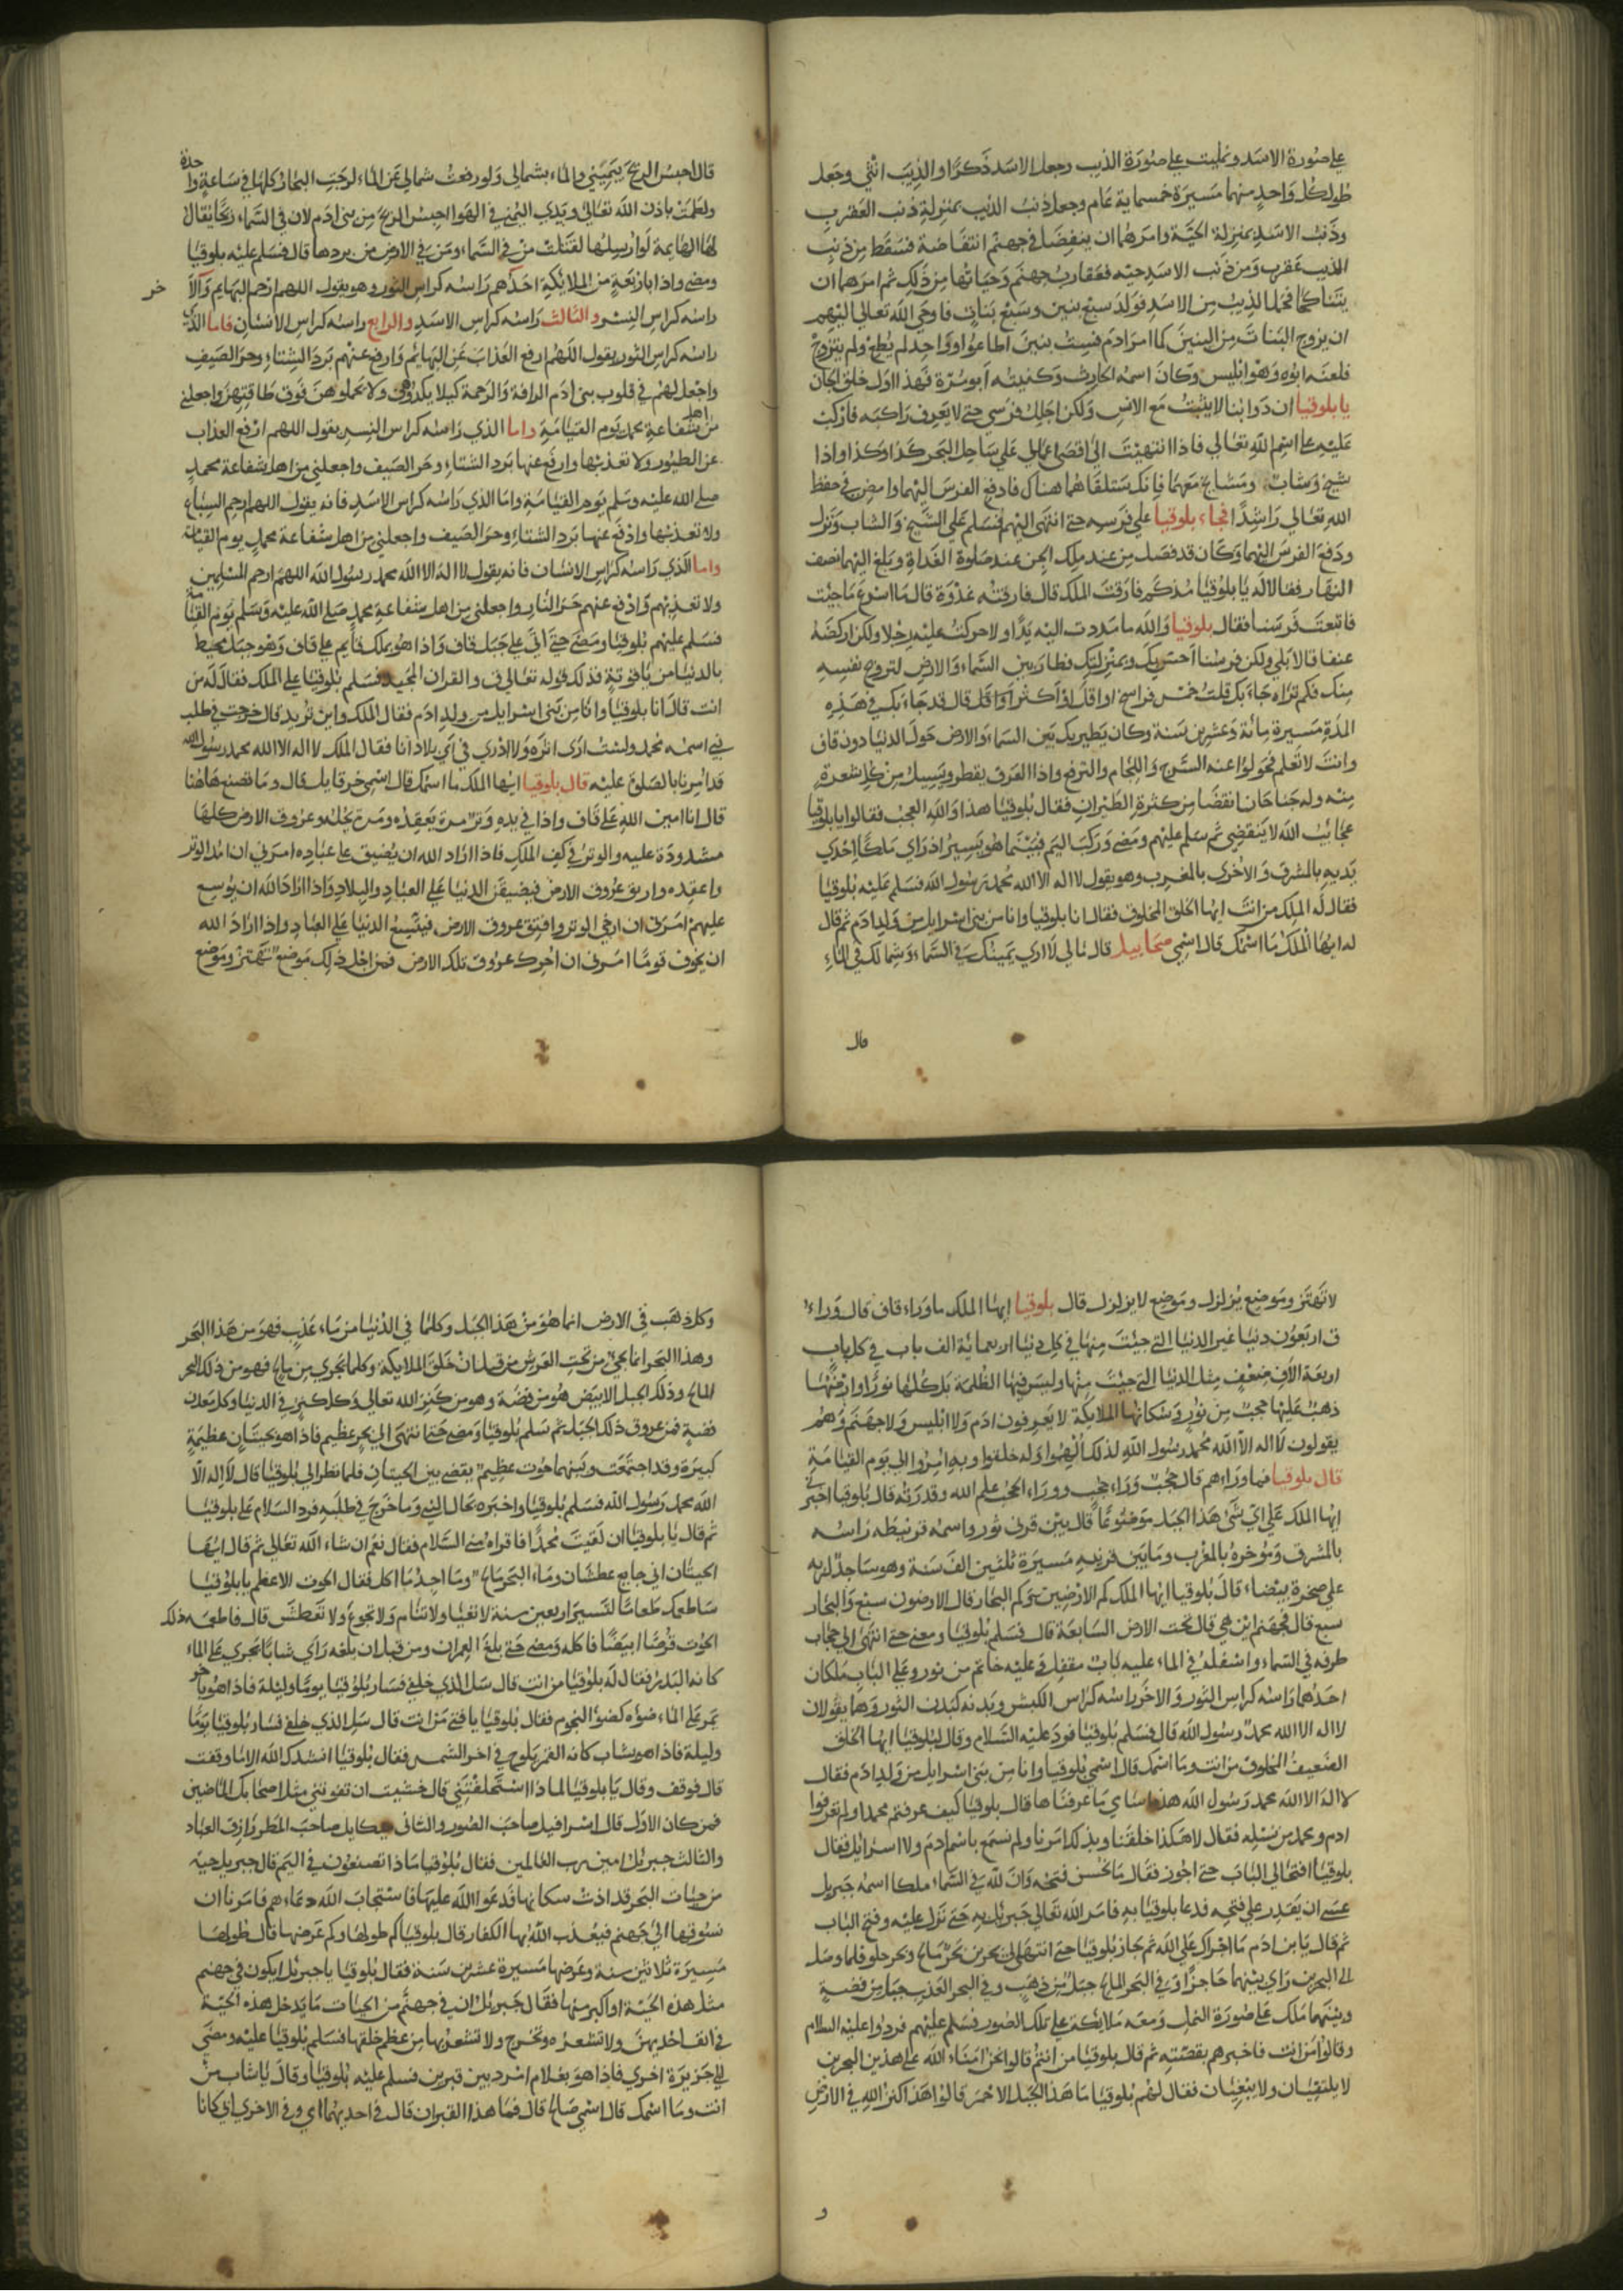 علي صورة الاسد وتمليت علي صورة الذيب وجعل الاسد ذكرًا والذيب انثي وجعل
طول كل واحد منهما مسيرة خمسماية عام وجعل ذنب الذيب بمنزلة ذنب العقرب
وذنب الاسد بمنزلة الحية وامرهما ان ينفضا في جهنم انتفاضة فسقط من ذنب
الذيب عقرب ومن ذنب الاسد حيه فعقارب جهنم وحياتها من ذلك ثم امرهما ان
يتناكحا فحمل الذيب من الاسد فولد سبع بنين وسبع بنات فاوحي الله تعالي اليهم
ان يزوج البنات من البنين كما امر ادم فست بنين اطاعوا وواحد لم يطع ولم يتزوج
فلعنه ابوه وهو ابليس وكان اسمه الحارث وكنيته ابو مرّة فهذا اول خلق الجان
يا بلوقيا ان دوابنا لا يثبت مع الانس ولكن اجلل فرسي حتي لا يعرف راكبه فاركب
عليه علي اسم الله تعالي فاذا انتهيت الي اقصي اعمالي علي ساحل البحر كذا وكذا واذا
شيخ وشاب ومشايخ معهما فانك ستلقاهما هناك فادفع الفرس اليهما وامض في حفظ
الله تعالي راشدًا فجاء بلوقيا علي فرسه حتي انتهي اليهم فسلم علي الشيخ والشاب ونزل
ودفع الفرس اليهما وكان قد فصل من عند ملك الجن عند صلوة الغداة وبلغ اليهما نصف
النهار فقالا له يا بلوقيا مذكم فارقت الملك قال فارقته غدوة قال ما اسرع ما جيت
فاتعبت فرسنا فقال بلوقيا والله ما مددت اليه يدًا ولا حركت عليه رجلا ولكن اركضه
عنفا قالا بلي ولكن فرسنا احس بك وبمنزلتك فطار بين السماء والارض لتروح نفسه
منك فكم تراه جاء بك قلت خمس فراسخ او اقل او اكثر او اقل قال قد جاء بك في هذه
المدة مسيرة مائة وعشرين سنة وكان يطير بك بين السماء والارض حول الدنيا دون قاف
وانت لا تعلم فحولوا عنه السرج واللجام والبرقع واذا العرق يقطر ويسيل من كل شعرة
منه وله جناحان انقضا من كثرة الطيران فقال بلوقيا هذا والله العجب فقالوا يا بلوقيا
عجايب الله لا ينقضي ثم سلم عليهم ومضي وركب اليم فبينما هو يسير اذ راي ملكًا احدي
يديه بالمشرق والاخري بالمغرب وهو يقول لا اله الا الله محمد رسول الله فسلم عليه بلوقيا
فقال له الملك من انت ايها الخلق المخلوق فقال انا بلوقيا وانا من بني اسرايل من ولد ادم ثم قال
له ايها الملك ما اسمك قال اسمي صحابيل قال مالي لا اري يمينك في السماء وشمالك في الماء
قال
قال احبس الريح بيميني والماء بشمالي ولو رفعت شمالي عن الماء لزجت البحار كلها في ساعة واحدة
ولطمت باذن الله تعالي ويدي اليمني في الهوا احبس الريح من بني ادم لان في السماء ريحا يقال
لها الهايمة لو ارسلتها لقتلت من في السماء ومن في الارض من بردها قال فسلم عليه بلوقيا
ومضي واذا باربعة من الملايكة احدهم راسه كراس الثور وهو يقول اللهم ارحم البهايم والآخر
راسه كراس النسر والثالث راسه كراس الاسد والرابع راسه كراس الانسان فاما الذي
راسه كراس الثور يقول اللهم ارفع العذاب عن البهايم وارفع عنهم برد الشتاء وحر الصيف
واجعل لهم في قلوب بني ادم الرافة والرحمة كيلا يكدوهن ولا يحملوهن فوق طاقتهن واجعلني
من اهل شفاعة محمد يوم القيامة واما الذي راسه كراس النسر يقول اللهم ارفع العذاب
عن الطيور ولا تعذبها وارفع عنها برد الشتاء وحر الصيف واجعلني من اهل شفاعة محمد
صلي الله عليه وسلم يوم القيامة واما الذي راسه كراس الاسد فانه يقول اللهم ارحم السباع
ولا تعذبها وادفع عنها برد الشتاء وحر الصيف واجعلني من اهل شفاعة محمد يوم القيامة
واما الذي راسه كراس الانسان فانه يقول لا اله الا الله محمد رسول الله اللهم ارحم المسلمين
ولا تعذبهم وادفع عنهم حر النار واجعلني من اهل شفاعة محمد صلي الله عليه وسلم يوم القيامة
فسلم عليهم بلوقيا ومضي حتي اتي علي جبل قاف واذا هو بملك قايم علي قاف وهو جبل محيط
بالدنيا من ياقوتة فذلك قوله تعالي ق والقران المجيد فسلم بلوقيا علي الملك فقال له من
انت قال انا بلوقيا وانا من بني اسرايل من ولد ادم فقال الملك واين تريد قال خرجت في طلب
نبي اسمه محمد ولست اري اثره ولا ادري في اي بلاد انا فقال الملك لا اله الا الله محمد رسول الله
قد امرنا بالصلوة عليه قال بلوقيا ايها الملك ما اسمك قال اسمي حرقايل قال وما تصنع هاهنا
قال انا امين الله علي قاف واذا في يده وتر مرة يعقده ومرة يحله وعروق الارض كلها
مشدودة عليه والوتر في كف الملك فاذا اراد الله ان يضيق علي عباده امرني ان امد الوتر
واعقده واربق عروق الارض فيضيق الدنيا علي العباد والبلاد واذا اراد الله ان يوسع
عليهم امرني ان ارخي الوتر وافتق عروق الارض فيتسع الدنيا علي العباد واذا اراد الله
ان يخوف قومًا امرني ان احرك عروق تلك الارض فمن اجل ذلك موضع تهتز وموضع
لا تهتز وموضع يزلزل وموضع لا يزلزل قال بلوقيا ايها الملك ما وراء قاف قال وراء
ق اربعون دنيا غير الدنيا التي جيت منها في كل دنيا اربعماية الف باب في كل باب
اربعة الاف ضعف مثل الدنيا التي جيت منها وليس فيها الظلمة بل كلها نور وارضها
ذهب عليها حجب من نور وسكانها الملايكة لا يعرفون ادم ولا ابليس ولا جهنم وهم
يقولون لا اله الا الله محمد رسول الله لذلك الهموا وله خلقوا وبه امروا الي يوم القيامة
قال بلوقيا فما وراءهم قال حجب وراء حجب ووراء الحجب علم الله وقدرته قال بلوقيا اخبرني
ايها الملك علي اي شي هذا الجبل موضوعًا قال بين قرني ثور واسمه قرنيطه راسه
بالمشرق وموخره بالمغرب وما بين قرنيه مسيرة ثلثين الف سنة وهو ساجد لربه
علي صخرة بيضاء قال بلوقيا ايها الملك كم الارضين وكم البحار قال الارضون سبع والبحار
سبع قال فجهنم اين هي قال تحت الارض السابعة قال فسلم بلوقيا ومضي حتي انتهي الي حجاب
طرفه في السماء واسفله في الماء عليه باب مقفل وعليه خاتم من نور وعلي الباب ملكان
احدهما راسه كراس الثور والاخر راسه كراس الكبش وبدنه كبدن الثور وهما يقولان
لا اله الا الله محمد رسول الله قال فسلم بلوقيا فرد عليه السلام وقالا لبلوقيا ايها الخلق
الضعيف المخلوق من انت وما اسمك قال اسمي بلوقيا وانا من بني اسرايل من ولد ادم فقال
لا اله الا الله محمد رسول الله هذه اسامي ما عرفناها قال بلوقيا كيف عرفتم محمدا ولم تعرفوا
ادم ومحمد من نسله فقال لا هكذا خلقنا وبذلك امرنا ولم نسمع باسم ادم ولا اسرايل فقال
بلوقيا افتحا لي الباب حتي اجوز فقال ما نحسن فتحه وان لله في السماء ملكا اسمه جبريل
عسي ان يقدر علي فتحه فدعا بلوقيا به فامر الله تعالي جبريل به حتي نزل عليه وفتح الباب
ثم قال يا بن ادم ما اجراك علي الله ثم جاز بلوقيا حتي انتهي الي بحرين بحر مالح وبحر حلو فلما وصل
الي البحرين راي بينهما حاجزًا وفي البحر المالح جبل من ذهب وفي البحر العذب جبل من فضة
وبينهما ملك علي صورة النمل ومعه ملايكة علي تلك الصور فسلم عليهم فردوا عليه السلام
وقالوا من انت فاخبرهم بقصته ثم قال بلوقيا من انتم قالوا نحن امناء الله علي هذين البحرين
لا يلتقيان ولا يبغيان فقال لهم بلوقيا ما هذا الجبل الاحمر قالوا هذا كنز الله في الارض
و
وكل ذهب في الارض انما هو من هذا الجبل وكلما في الدنيا من ماء عذب فهو من هذا البحر
وهذا البحر انما يجي من تحت العرش من قبل ان خلق الملايكة وكلما يجري من مالح فهو من ذلك البحر
المالح وذلك الجبل الابيض هو من فضة وهو من كنز الله تعالي وكل كنز في الدنيا وكل معدن
فضة فمن عروق ذلك الجبل ثم سلم بلوقيا ومضي حتي انتهي الي بحر عظيم فاذا هو بحيتان عظيمة
كبيرة وقد اجتمعت وبينهما حوت عظيم يقضي بين الحيتان فلما نظر الي بلوقيا قال لا اله الا
الله محمد رسول الله فسلم بلوقيا واخبره بحال النبي وما خرج في طلبه فرد السلام علي بلوقيا
ثم قال يا بلوقيا ان لقيت محمدًا فاقراه مني السلام فقال نعم ان شاء الله تعالي ثم قال ايها
الحيتان اني جايع عطشان وماء البحر مالح وما اجد ما اكل فقال الحوت الاعظم يا بلوقيا
ساطعمك طعامًا لتسير اربعين سنة لا تعيا ولا تنام ولا تجوع ولا تعطش قال فاطعمه ذلك
الحوت قرصًا ابيضًا فاكله ومضي حتي بلغ العمران ومن قبل ان بلغه راي شابا يجري علي الماء
كانه البدر فقال له بلوقيا من انت قال سل الذي خلفي فسار بلوقيا يومًا وليلة فاذا هو باخر
يمر علي الماء ضوؤه كضوء النجوم فقال بلوقيا يا فتي من انت قال سل الذي خلفي فسار بلوقيا يومًا
وليلة فاذا هو بشاب كانه القمر يلوح في اخر الشمس فقال بلوقيا انشدك الله الا ما وقفت
قال فوقف وقال يا بلوقيا لماذا استحلفتني قال خشيت ان تفوتني مثل اصحابك الماضين
فمن كان الاول قال اسرافيل صاحب الصور والثاني ميكايل صاحب المطر وارزاق العباد
والثالث جبريل امين رب العالمين فقال بلوقيا ماذا تصنعون في اليم قال جبريل حية
من حيات البحر قد اذت سكانها فدعوا الله عليها فاستجاب الله دعاءهم فامرنا ان
نسوقها الي جهنم فيعذب الله بها الكفار قال بلوقيا كم طولها وكم عرضها قال طولها
مسيرة ثلاثين سنة وعرضها مسيرة عشرين سنة فقال بلوقيا يا جبريل ايكون في جهنم
مثل هذه الحية او اكبر منها فقال جبريل ان في جهنم من الحيات ما يدخل هذه الحية
في انف احديهن ولا تشعر به وتخرج ولا تشعر بها من عظم خلقها فسلم بلوقيا عليه ومضي
الي جزيرة اخري فاذا هو بغلام امرد بين قبرين فسلم عليه بلوقيا وقال يا شاب من
انت وما اسمك قال اسمي صالح قال فما هذا القبران قال في احديهما ابي وفي الاخري امي كانا